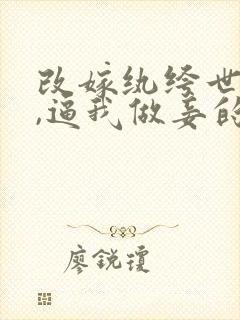 改嫁纨绔世
,逼我做妾的
廖锐琼